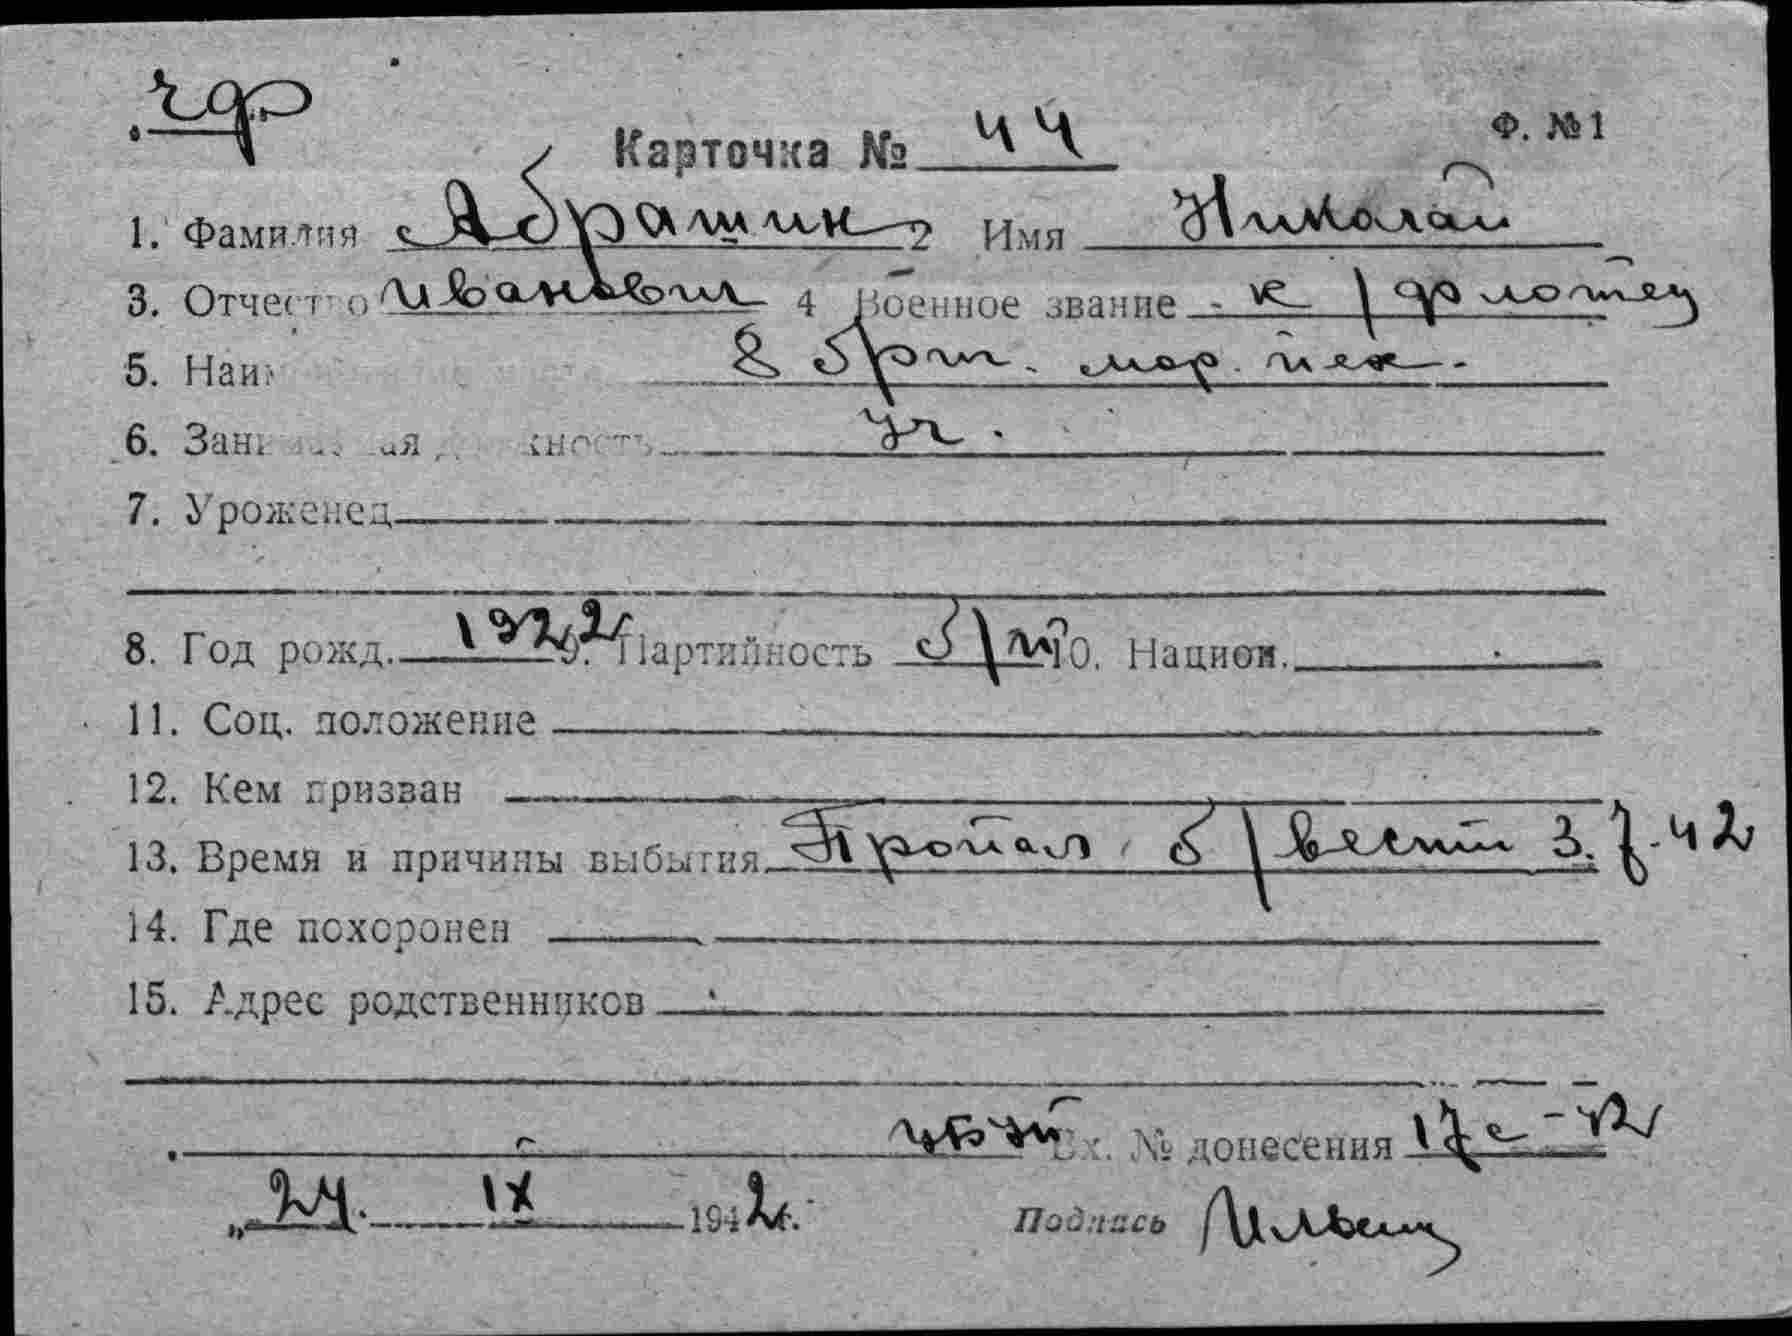 чф
Карточка № 44 Ф. №1
1. Фамилия Абрашин 2 Имя Николай
3. Отчество Иванович 4 Военное звание - к/флотец
5. Наим 8 брт. мор. пех.
6. Занимаемая должность уч.
7. Уроженец
8. Год рожд. 1922 9. Партийность б/п 10. Национ.
11. Соц. положение
12. Кем призван
13. Время и причины выбытия Пропал б/вести 3.7.42
14. Где похоронен
15. Адрес родственников
Вх. № донесения 17с-42
„24. IX 1942г. Подпись